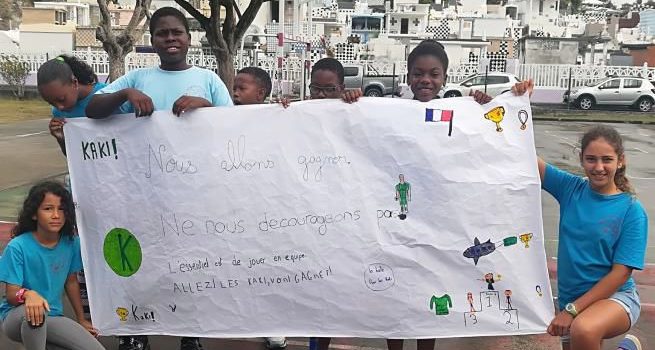 KAKI!
Nous allons gagner.
Ne nous decourageons pas
K
L'essentiel est de jouer en equipe
ALLEZ! LES KAKI, VONT GAGNER!
Kaki
1
3 2